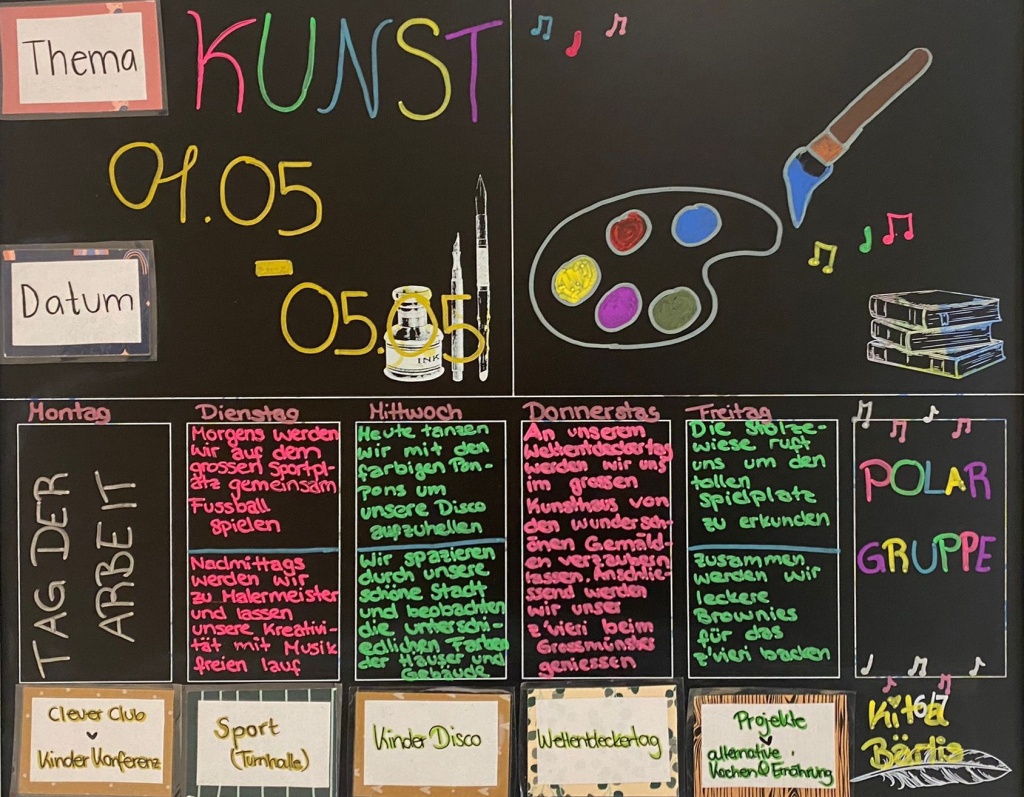 Thema
KUNST
01.05
-
Datum
05.05
INK
Montag
TAG DER
ARBEIT
Dienstag
Morgens werden
wir auf dem
grossen Sportpl-
atz gemeinsam
Fussball
spielen
Nachmittags
werden wir
zu Malermeister
und lassen
unsere Kreativi-
tät mit Musik
freien lauf
Mittwoch
Heute tanzen
wir mit den
farbigen Pom-
pons um
unsere Disco
aufzuhellen
Wir spazieren
durch unsere
schöne Stadt
und beobachten
die unterschi-
edlichen Farben
der Häuser und
Gebäude
Donnerstag
An unserem
Weltentdeckertag
werden wir uns
im grossen
Kunsthaus von
den wundersch-
önen Gemäld-
en verzaubern
lassen. Anschlie-
ssend werden
wir unser
z'vieri beim
Grossmünster
geniessen
Freitag
Die Stolze-
wiese ruft
uns um den
tollen
Spielplatz
zu erkunden
Zusammen
werden wir
leckere
Brownies
für das
z'vieri backen
POLAR
GRUPPE
Clever Club
Kinder Konferenz
Sport
(Turnhalle)
Kinder Disco
Weltentdeckertag
Projekte
alternative
Kochen & Ernährung
6/7
Kita
Bärlis